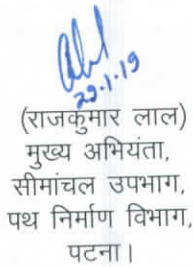 29.1.19
(राजकुमार लाल)
मुख्य अभियंता,
सीमांचल उपभाग,
पथ निर्माण विभाग,
पटना।